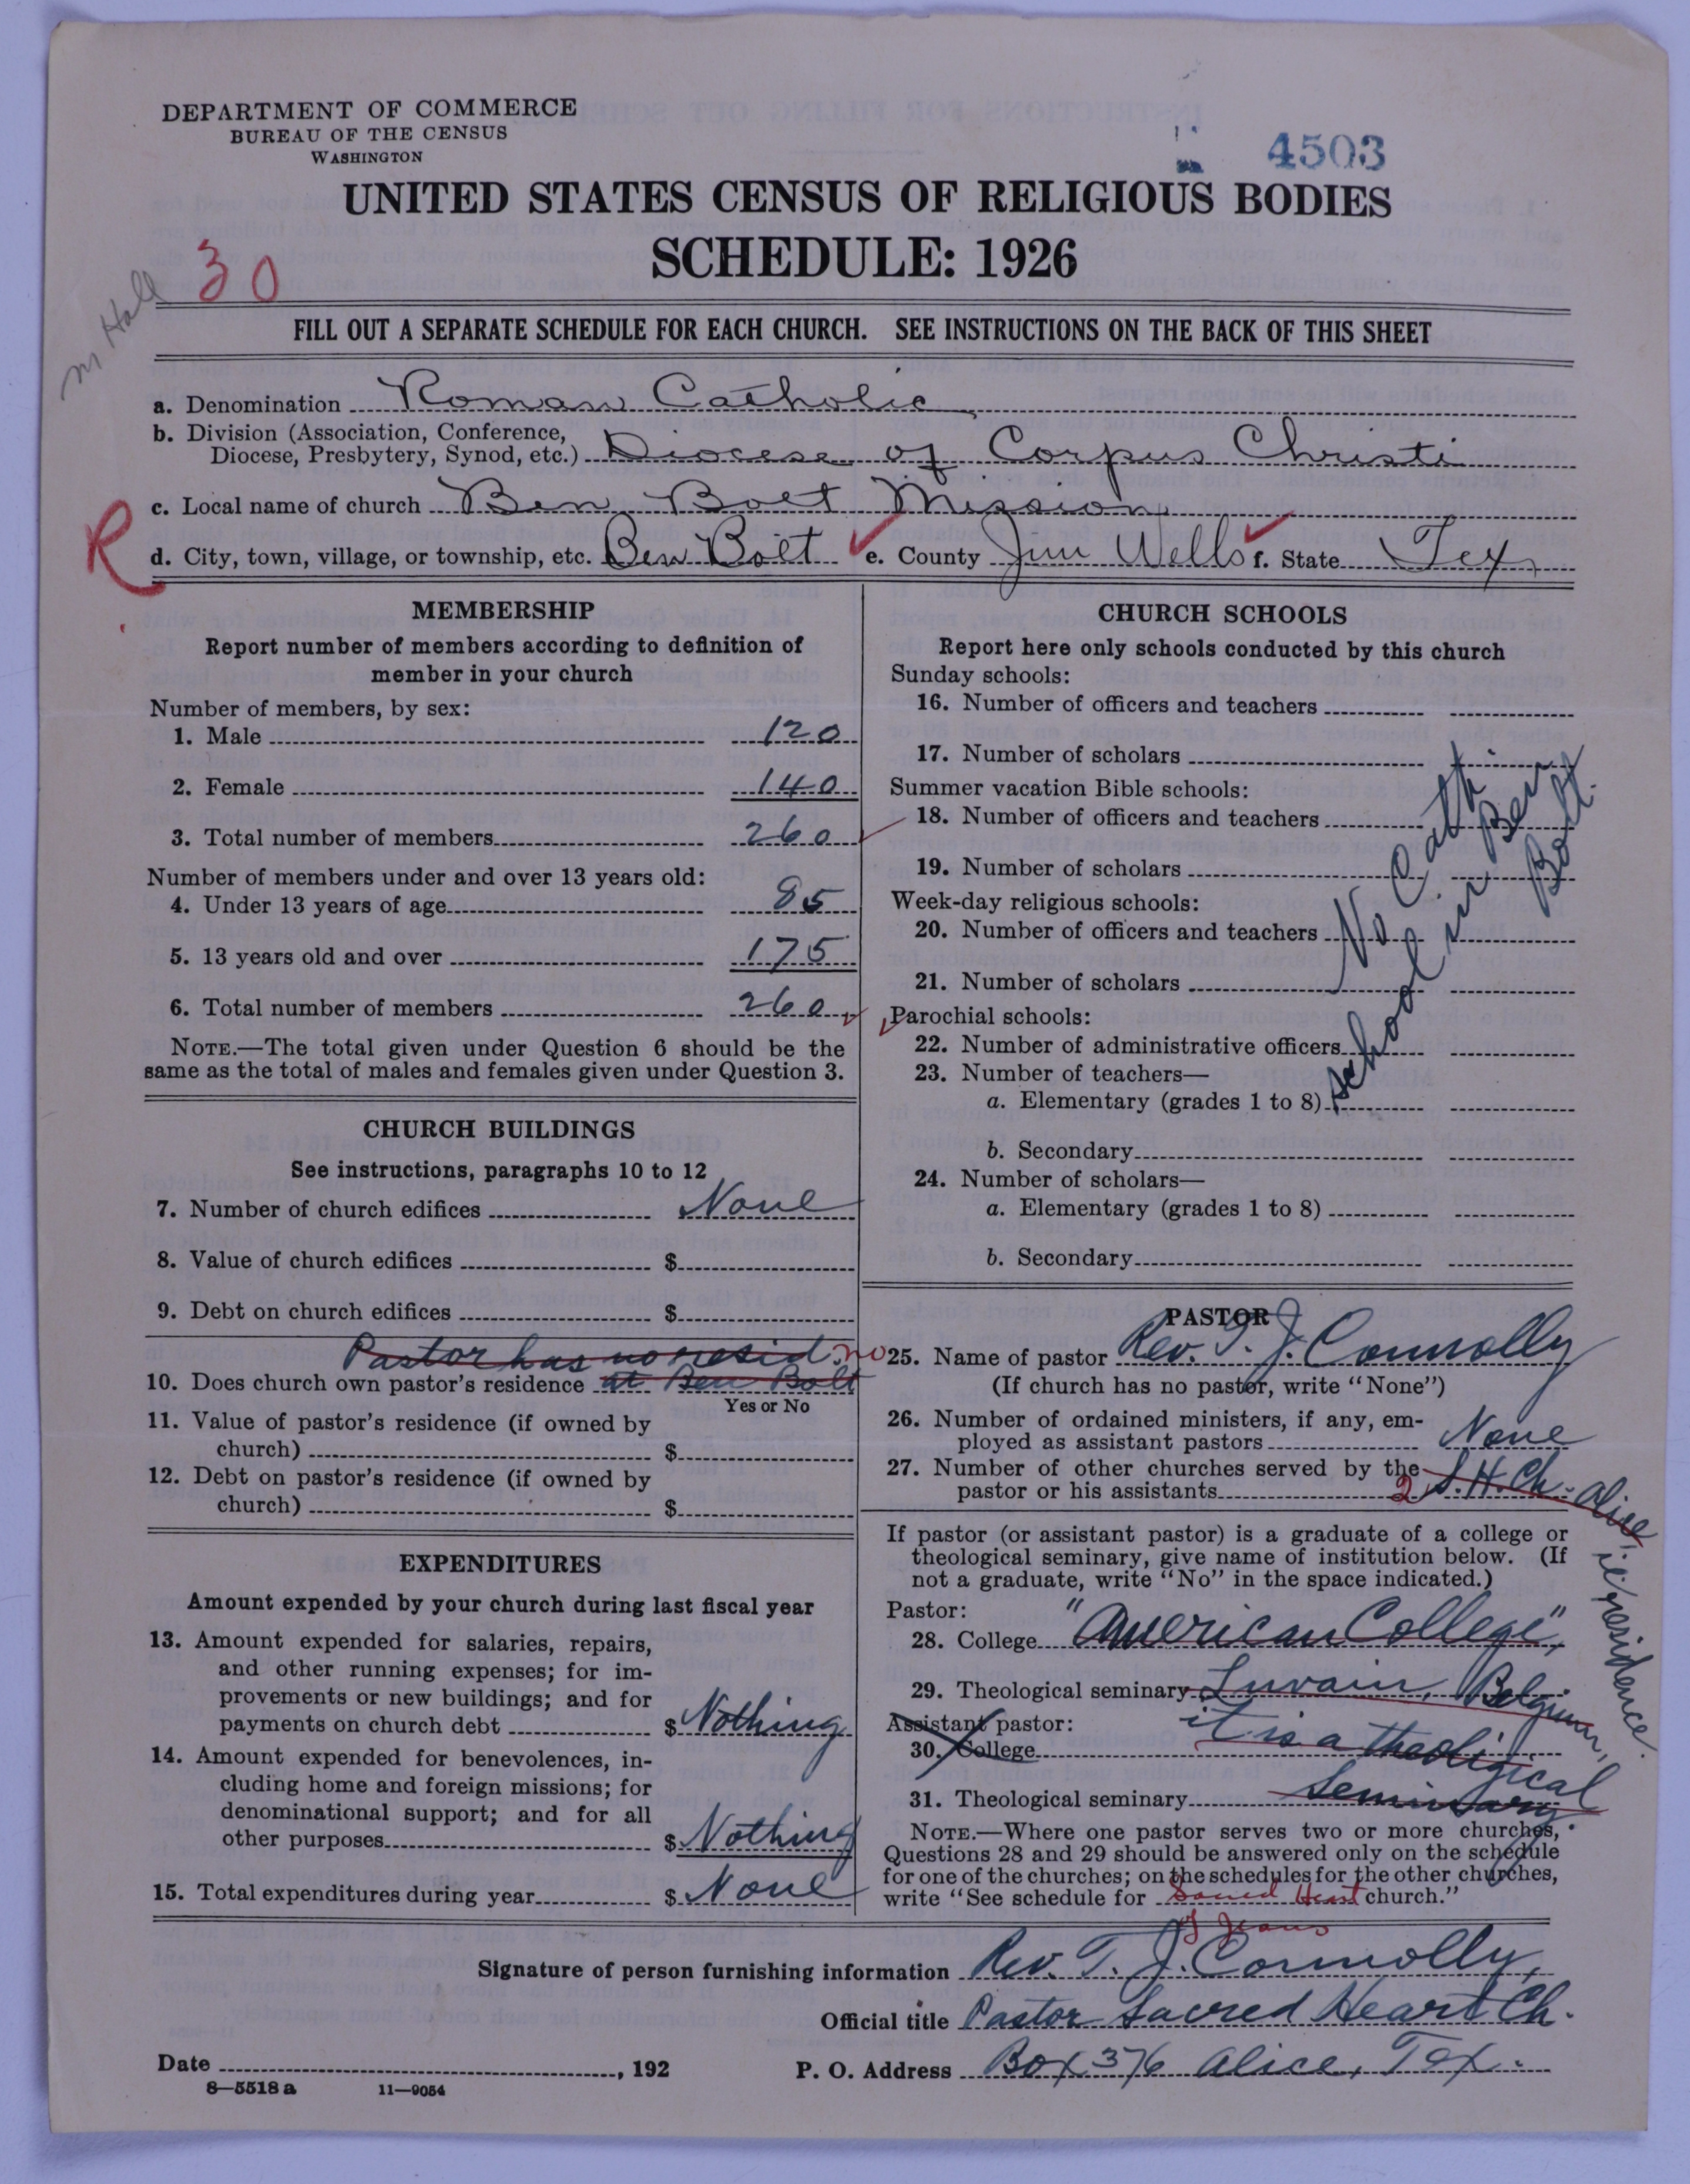 DEPARTMENT OF COMMERCE
BUREAU OF THE CENSUS
WASHINGTON
4503
UNITED STATES CENSUS OF RELIGIOUS BODIES
SCHEDULE: 1926
30
m Hall
FILL OUT A SEPARATE SCHEDULE FOR EACH CHURCH. SEE INSTRUCTIONS ON THE BACK OF THIS SHEET
a. Denomination Roman Catholic
b. Division (Association, Conference,
Diocese, Presbytery, Synod, etc.) Diocese of Corpus Christi
c. Local name of church Ben Bolt Mission
R
d. City, town, village, or township, etc. Ben Bolt e. County Jim Wells f. State Tex
MEMBERSHIP
Report number of members according to definition of
member in your church
Number of members, by sex:
1. Male 120
2. Female 140
3. Total number of members 260
Number of members under and over 13 years old:
4. Under 13 years of age 85
5. 13 years old and over 175
6. Total number of members 260
NOTE.—The total given under Question 6 should be the
same as the total of males and females given under Question 3.
CHURCH BUILDINGS
See instructions, paragraphs 10 to 12
7. Number of church edifices None
8. Value of church edifices $
9. Debt on church edifices $
Pastor has no resid. no
10. Does church own pastor's residence at Ben Bolt
Yes or No
11. Value of pastor's residence (if owned by
church) $
12. Debt on pastor's residence (if owned by
church) $
EXPENDITURES
Amount expended by your church during last fiscal year
13. Amount expended for salaries, repairs,
and other running expenses; for im-
provements or new buildings; and for
payments on church debt $ Nothing
14. Amount expended for benevolences, in-
cluding home and foreign missions; for
denominational support; and for all
other purposes $ Nothing
15. Total expenditures during year $ None
CHURCH SCHOOLS
Report here only schools conducted by this church
Sunday schools:
16. Number of officers and teachers
17. Number of scholars
Summer vacation Bible schools:
18. Number of officers and teachers
19. Number of scholars
Week-day religious schools:
20. Number of officers and teachers
21. Number of scholars
Parochial schools:
22. Number of administrative officers
23. Number of teachers—
a. Elementary (grades 1 to 8)
b. Secondary
24. Number of scholars—
a. Elementary (grades 1 to 8)
b. Secondary
No Cath.
school in Ben
Bolt.
PASTOR
25. Name of pastor Rev. T. J. Connolly
(If church has no pastor, write "None")
26. Number of ordained ministers, if any, em-
ployed as assistant pastors None
27. Number of other churches served by the
pastor or his assistants 2 S. H. Ch. Alice,
residence.
If pastor (or assistant pastor) is a graduate of a college or
theological seminary, give name of institution below. (If
not a graduate, write "No" in the space indicated.)
Pastor:
28. College "American College",
29. Theological seminary Luvain, Belgium,
Assistant pastor: it is a theoligical
30. College
31. Theological seminary Seminary
NOTE.—Where one pastor serves two or more churches,
Questions 28 and 29 should be answered only on the schedule
for one of the churches; on the schedules for the other churches,
write "See schedule for Sacred Heart church."
of Jesus
Signature of person furnishing information Rev. T. J. Connolly,
Official title Pastor Sacred Heart Ch.
Date , 192 P. O. Address Box 376 Alice, Tex.
8—5518 a 11—9054